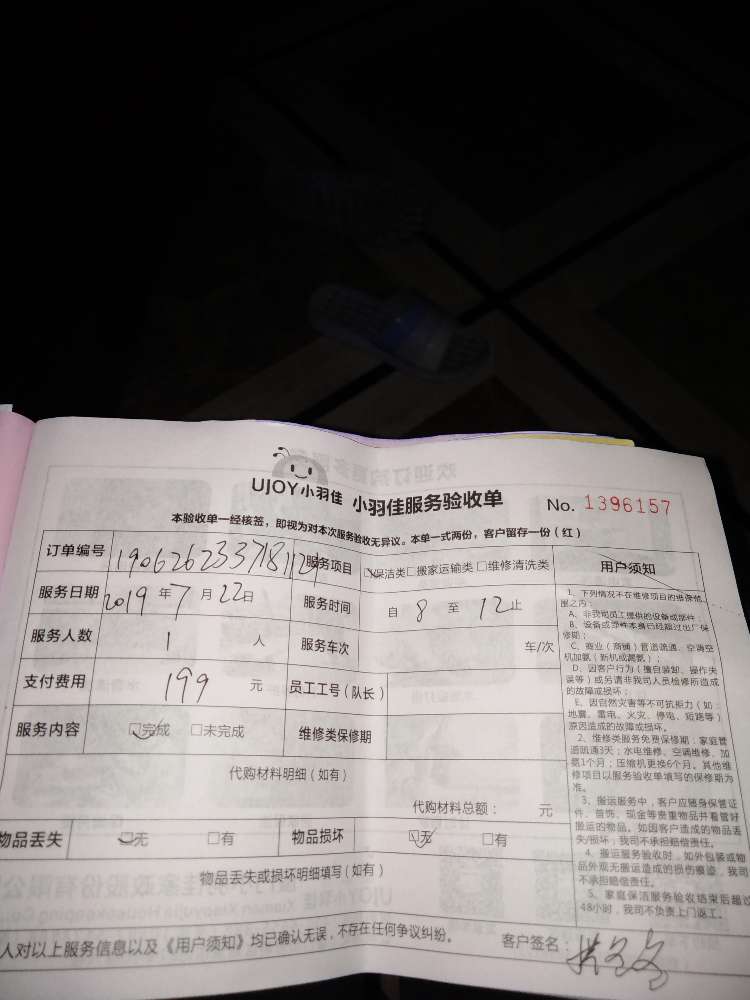 UJOY小羽佳 小羽佳服务验收单 No. 1396157
本验收单一经核签，即视为对本次服务验收无异议。本单一式两份，客户留存一份（红）
订单编号 服务项目 ☑保洁类□搬家运输类□维修清洗类 用户须知
服务日期 2019 年 7 月 22日 服务时间 自 8 至 12止
服务人数 1 人 服务车次 车/次
支付费用 199 元 员工工号（队长）
服务内容 ☑完成 □未完成 维修类保修期
代购材料明细（如有）
代购材料总额： 元
物品丢失 ☑无 □有 物品损坏 ☑无 □有
物品丢失或损坏明细填写（如有）
人对以上服务信息以及《用户须知》均已确认无误，不存在任何争议纠纷。 客户签名：
1、下列情况不在维修项目的维保范
围之内：
A、非我司员工提供的设备或部件；
B、设备或部件本身已经超过出厂保
修期；
C、商业（商铺）管道疏通、空调空
机加氨（新机或漏氨）；
D、因客户行为（擅自装卸、操作失
误等）或另请非我司人员检修所造成
的故障或损坏；
E、因自然灾害等不可抗拒力（如：
地震、雷电、火灾、停电、短路等）
原因造成的故障或损坏。
2、维修类服务免费保修期：家庭管
道疏通3天；水电维修、空调维修、加
氨1个月；压缩机更换6个月。其他维
修项目以服务验收单填写的保修期为
准。
3、搬运服务中，客户应随身保管证
件、首饰、现金等贵重物品并看管好
搬运的物品。如因客户造成的物品丢
失/损坏，我司不承担赔偿责任。
4、搬运服务验收时，如外包装或物
品外观无搬运造成的损伤痕迹，我司
不承担赔偿责任。
5、家庭保洁服务验收结束后超过
48小时，我司不负责上门返工。